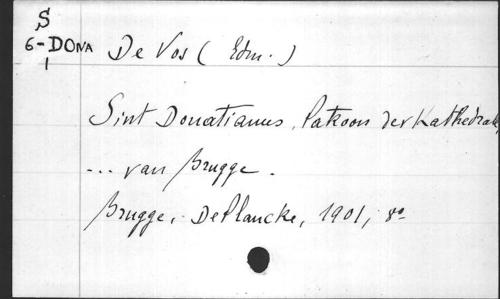 S
6-DONA De Vos (Edm.)
1
Sint Donatianus, Patroon der Kathedrale
... van Brugge.
Brugge, De Plancke, 1901, 8º